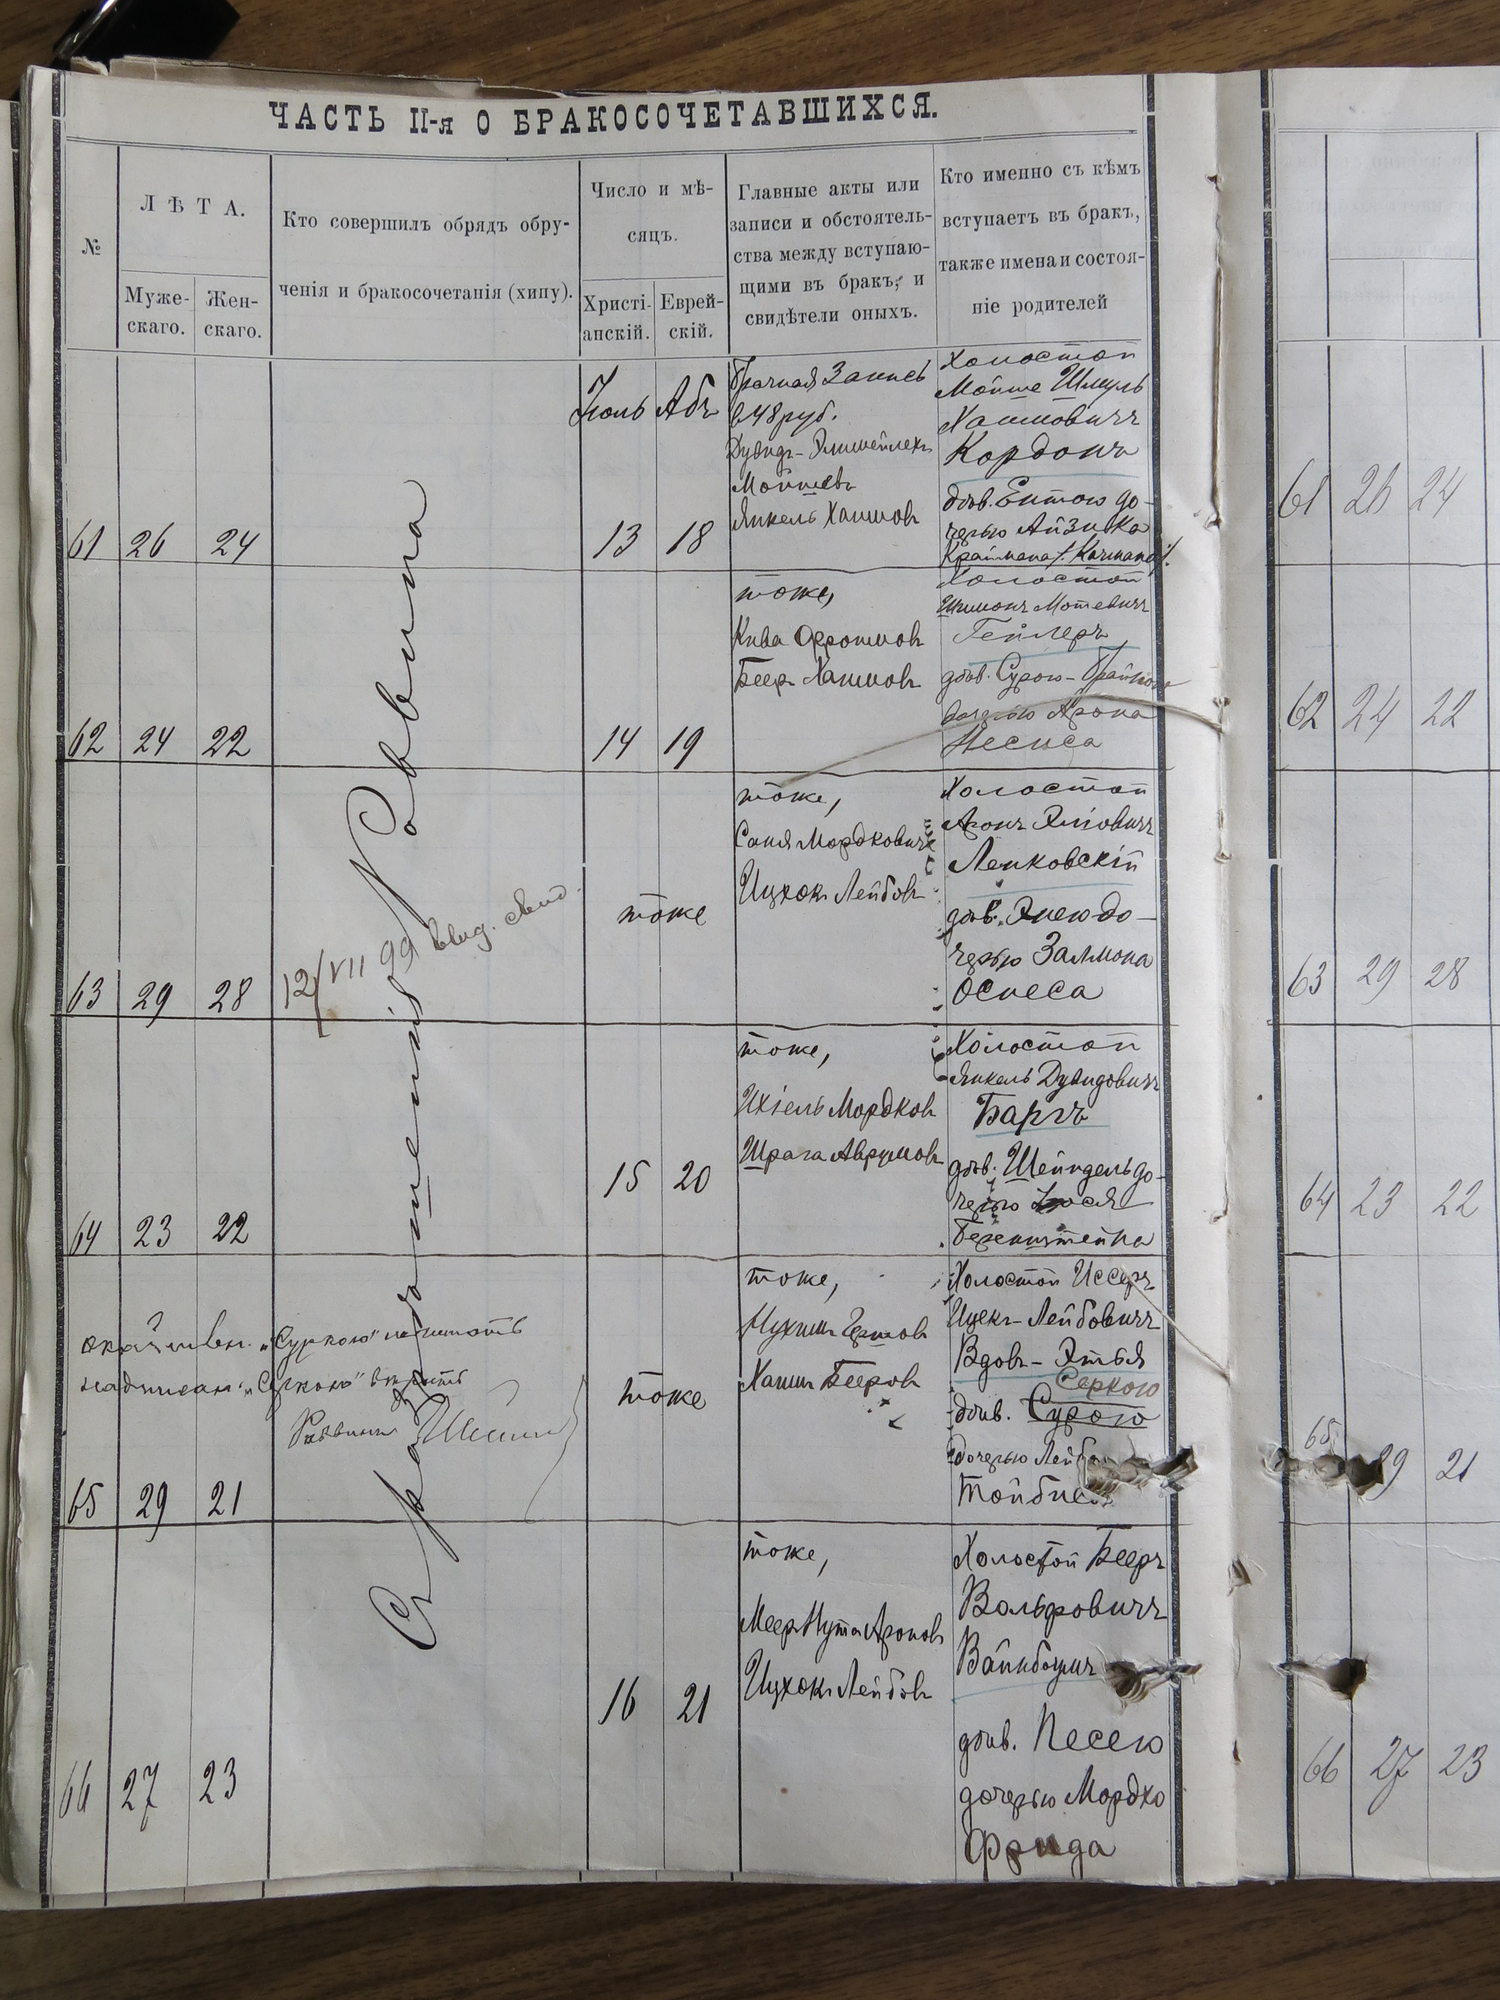 ЧАСТЬ II-я О БРАКОСОЧЕТАВШИХСЯ.
№
ЛѢТА.
Муже-
скаго.
Жен-
скаго.
Кто совершилъ обрядъ обру-
ченія и бракосочетанія (хипу).
Число и мѣ-
сяцъ.
Христі-
анскій.
Еврей-
скій.
Главные акты или
записи и обстоятель-
ства между вступаю-
щими въ бракъ, и
свидѣтели оныхъ.
Кто именно съ кѣмъ
вступаетъ въ бракъ,
также имена и состоя-
ніе родителей
61 26 24
Іюль Абъ
13 18
Брачная Запись
въ 48 руб.
Дувидъ-
Мойшевъ
Янкель Хаимовъ
Холостой
Мойше Шмуль
Хаимовичъ
Кордонъ
дѣв. Ентою до-
черью Айзика
62 24 22
14 19
тоже,
Кива Фроимовъ
Бееръ Хаимовъ
Холостой
Шимонъ Мотевичъ
Гейлеръ
дѣв. Сурою-
дочерью Арона
Песиса
63 29 28
12/VII 99 выд. свид.
тоже
тоже,
Саня Мордковичъ
Ицхокъ Лейбовъ
Холостой
Аронъ Эліовичъ
Лепковскій
дѣв. до-
черью Залмона
Осиеса
64 23 22
15 20
тоже,
Ихіель Мордковъ
Шрага Аврумовъ
Холостой
Янкель Дувидовичъ
Баргъ
дѣв. Шейндель до-
черью
Беренштейна
65 29 21
"Суркою"
надписан.
Раввинъ
тоже
тоже,
Нухимъ
Хаимъ Бееровъ
Холостой Иссеръ
Ицекъ-Лейбовичъ
Вдовъ-Этья
Серкою
дѣв. Сурою
дочерью
66 27 23
16 21
тоже,
Мееръ Нута Ароновъ
Ицхокъ Лейбовъ
Холостой Бееръ
Вольфовичъ
Вайнбоимъ
дѣв. Песею
дочерью Мордхо
Фрида
61 26 24
62 24 22
63 29 28
64 23 22
65 21
66 27 23